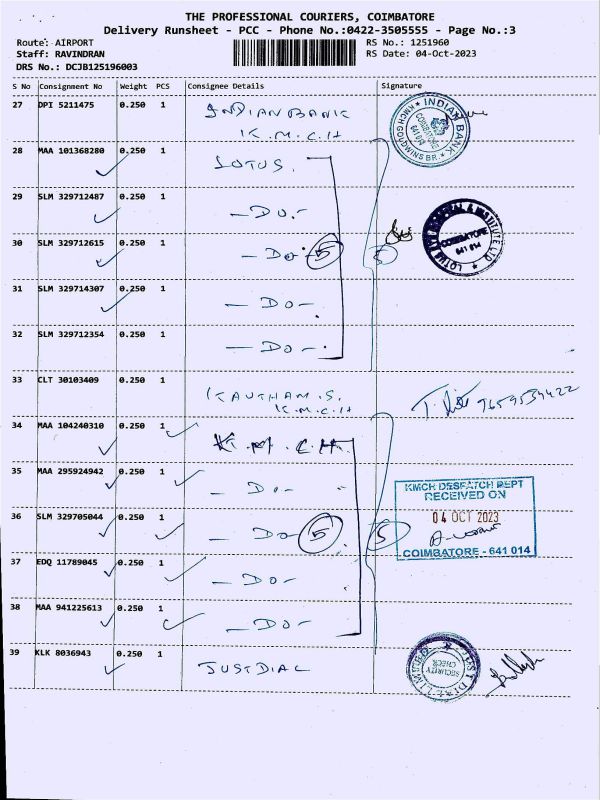 THE PROFESSIONAL COURIERS, COIMBATORE
Delivery Runsheet - PCC - Phone No.:0422-3505555 - Page No.:3
Route: AIRPORT RS No.: 1251960
Staff: RAVINDRAN RS Date: 04-Oct-2023
DRS No.: DCJB125196003
S No Consignment No Weight PCS Consignee Details Signature
27 DPI 5211475 0.250 1 INDIAN BANK
K.M.C.H
INDIAN BANK
KMCH GOLDWINS BR.
COIMBATORE
641 014
28 MAA 101368280 0.250 1 LOTUS.
29 SLM 329712487 0.250 1 - DO. -
30 SLM 329712615 0.250 1 - DO. 5 5
COIMBATORE
641 014
31 SLM 329714307 0.250 1 - DO -
32 SLM 329712354 0.250 1 - DO - .
33 CLT 30103409 0.250 1 KAUTHAM.S.
K.M.C.H
T. 9659534422
34 MAA 104240310 0.250 1 K.M.C.H.
35 MAA 295924942 0.250 1 - DO -
KMCH DESPATCH DEPT
RECEIVED ON
04 OCT 2023
COIMBATORE - 641 014
36 SLM 329705044 0.250 1 - DO 5 5
37 EDQ 11789045 0.250 1 - DO -
38 MAA 941225613 0.250 1 - DO -
39 KLK 8036943 0.250 1 JUSTDIAL
JUST DIAL LIMITED
SECURITY
CHECK